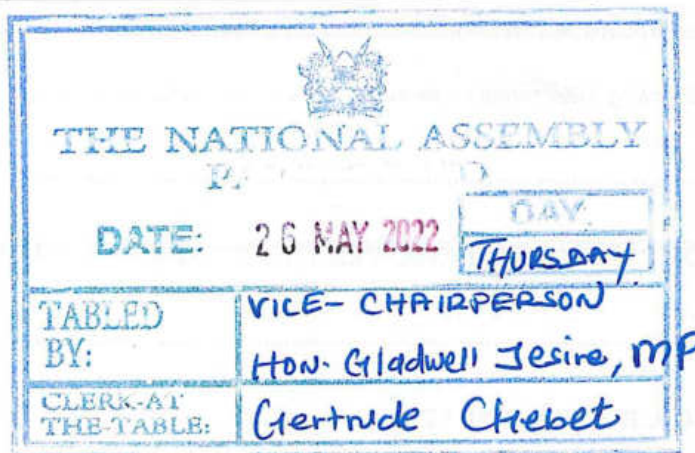 THE NATIONAL ASSEMBLY
DATE: 26 MAY 2022
DAY:
THURSDAY
TABLED BY:
VICE-CHAIRPERSON
HON. Gladwell Jesire, MP
CLERK-AT
THE-TABLE:
Gertrude Chebet